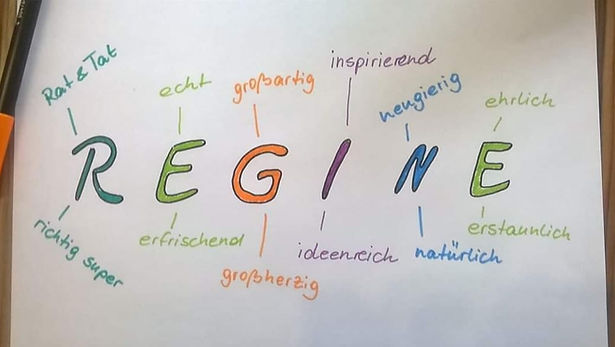 Rat & Tat
echt
großartig
inspirierend
neugierig
ehrlich
REGINE
richtig super
erfrischend
großherzig
ideenreich
natürlich
erstaunlich